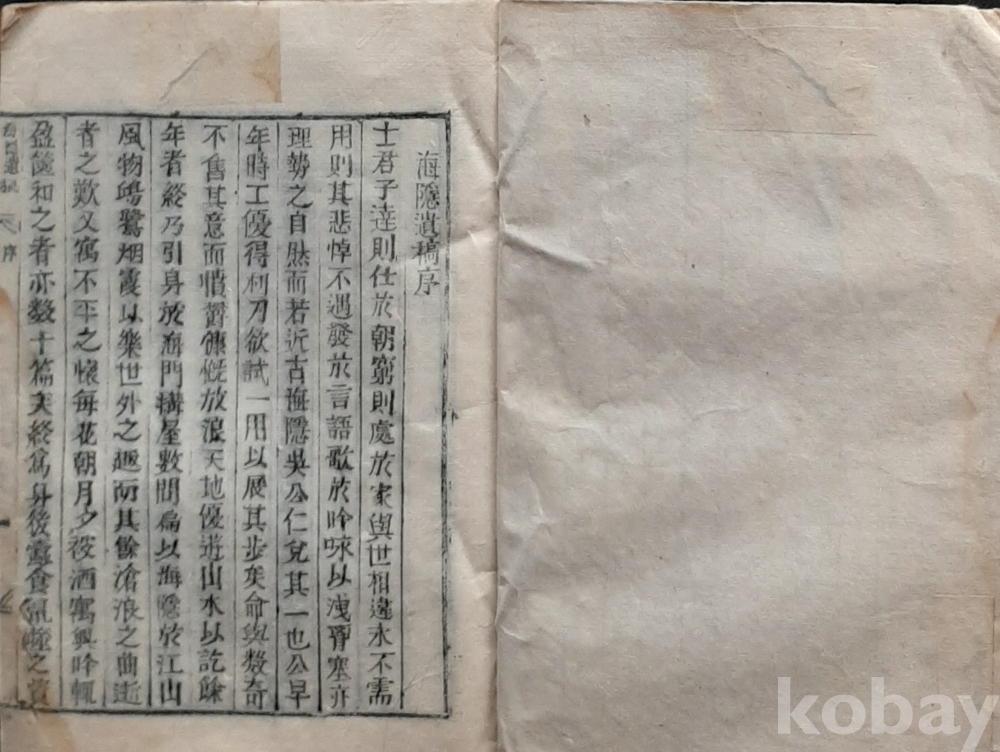 海隱遺稿序
士君子達則仕於朝窮則處於家與世相違永不需
用則其悲悼不遇發於言語歌於吟咏以洩㞃塞亦
理勢之自然而若近古海隱吳公仁兌其一也公早
年時工優得利刀欲試一用以展其步矣命與數奇
不售其意而憤鬱慷慨放浪天地優遊山水以訖餘
年者終乃引身於海門構屋數間扁以海隱於江山
風物鷗鷺烟霞以樂世外之趣而其餘滄浪之曲逝
者之歎又寓不平之懷每花朝月夕役酒寓興吟輒
盈篋和之者亦數十篇矣終爲身後蠹食氓之
遺 序
kobay